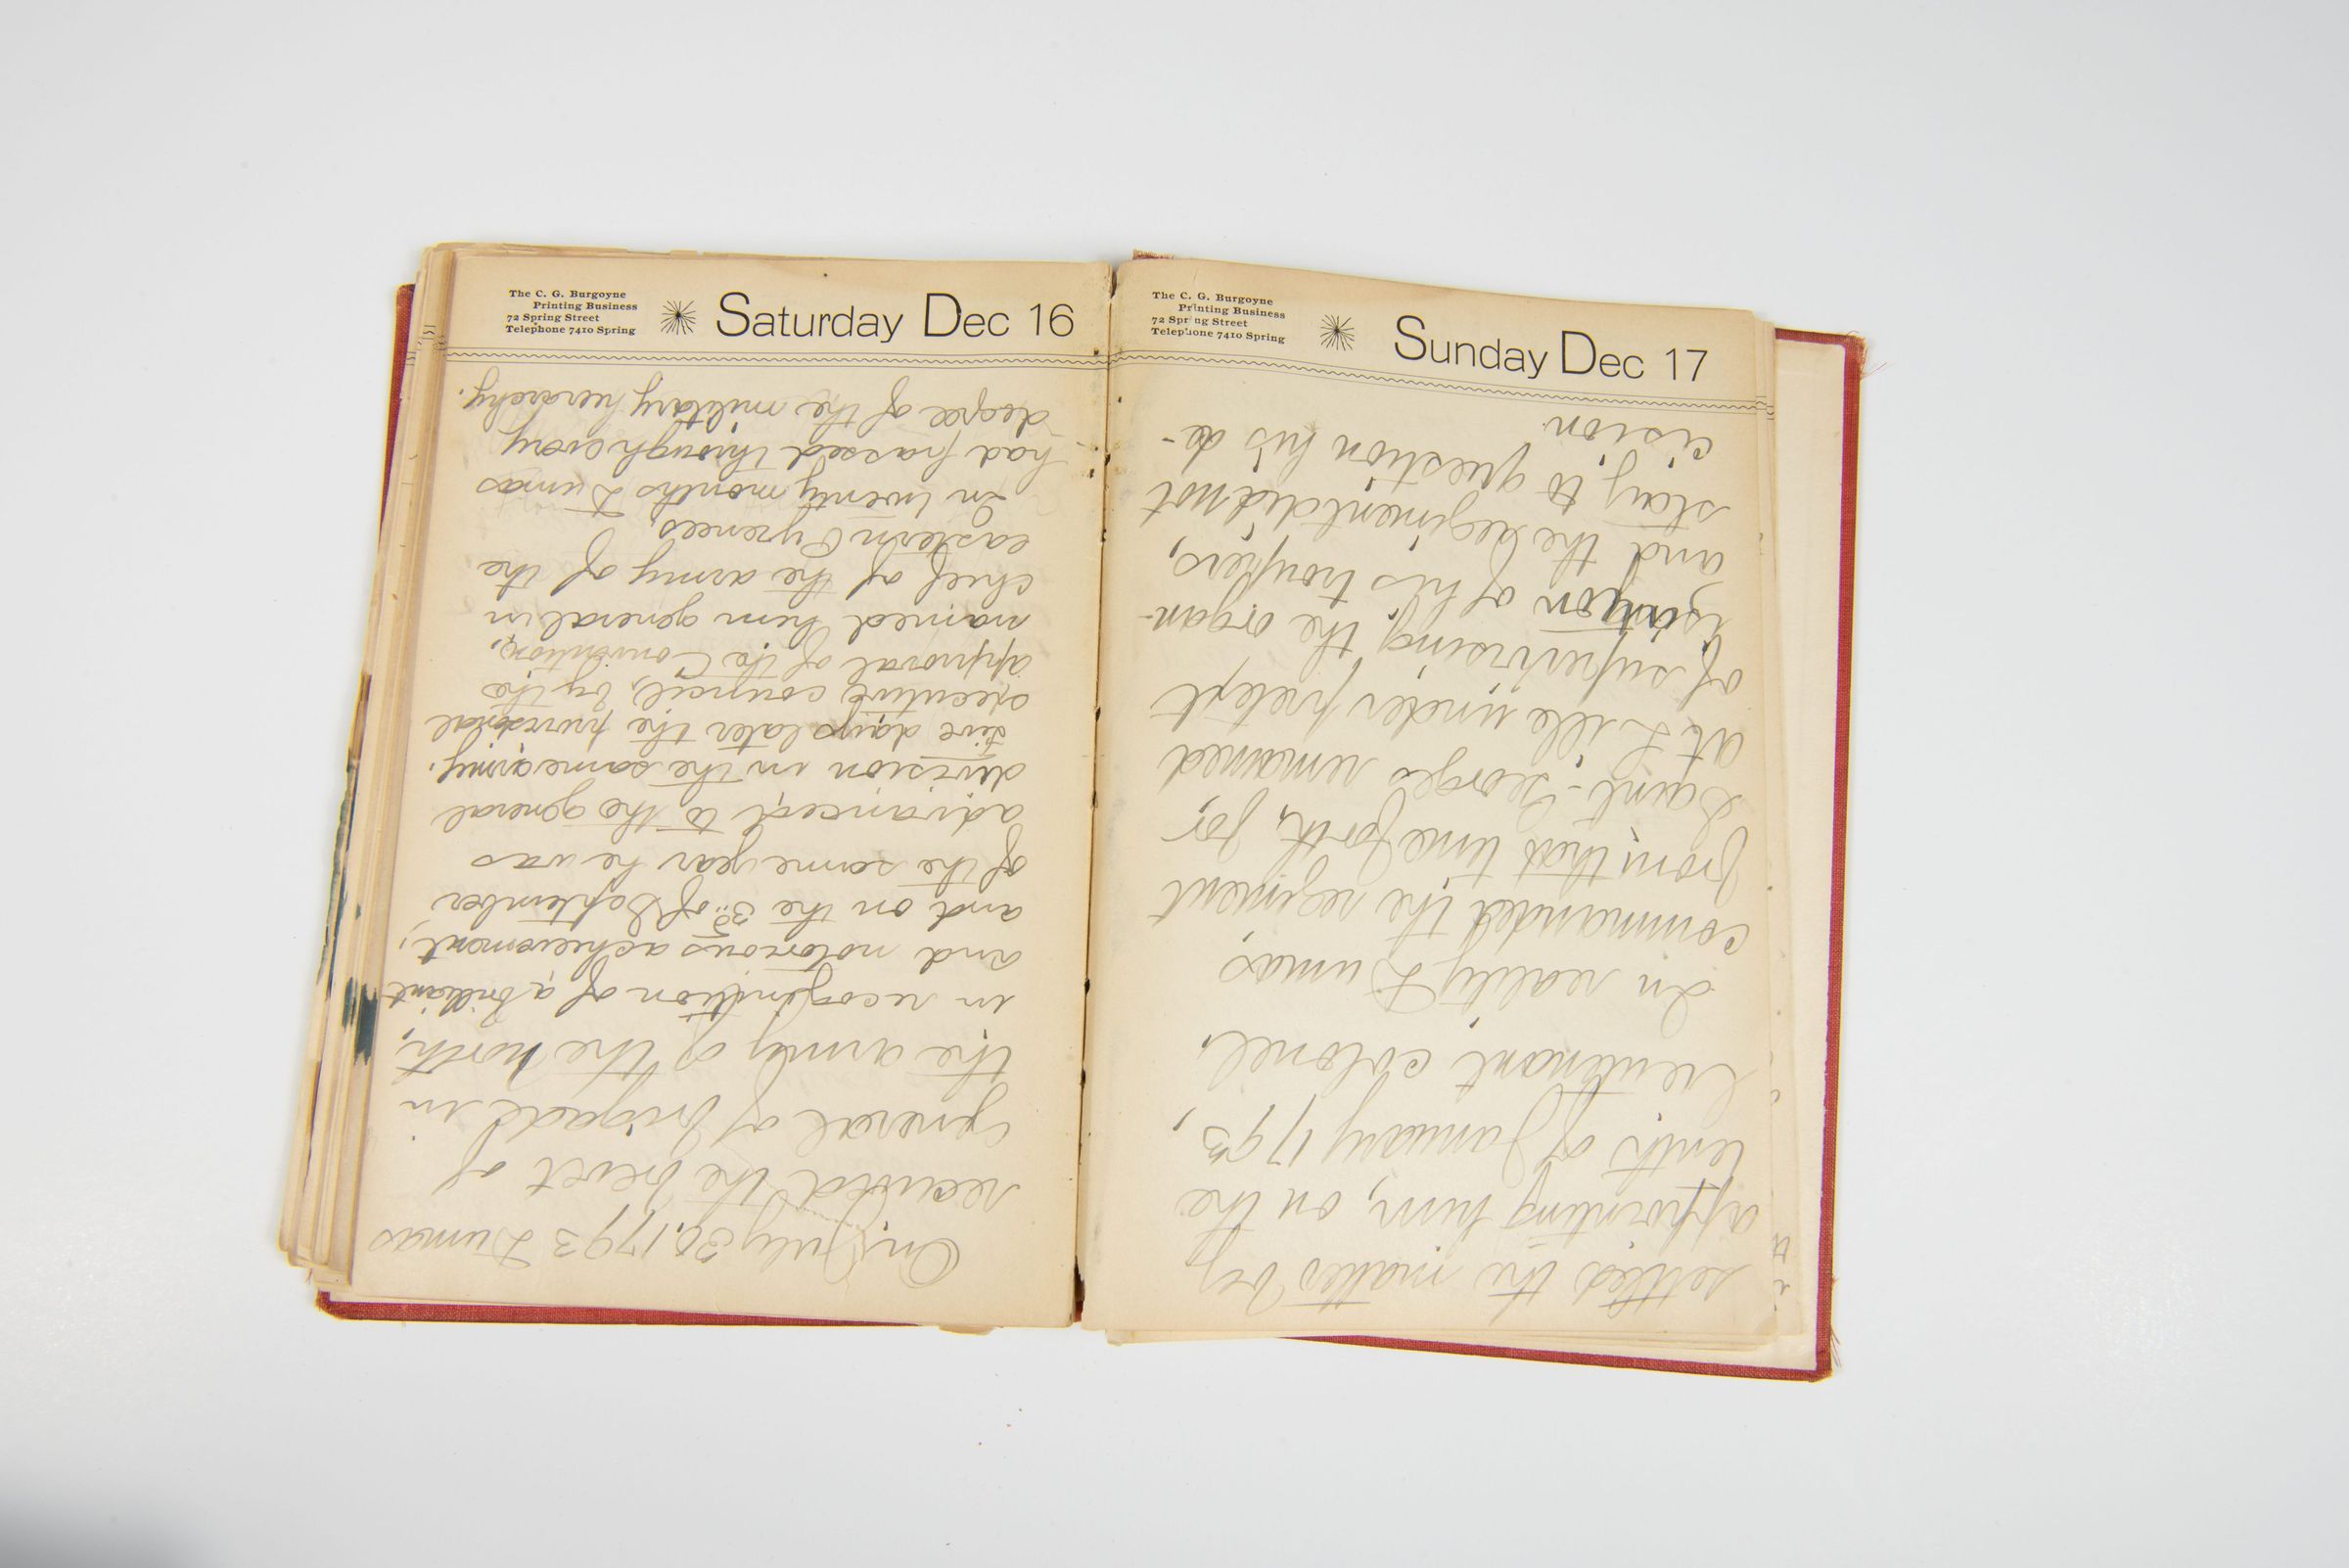 The C. G. Burgoyne
Printing Business
72 Spring Street
Telephone 7410 Spring
Saturday Dec 16
The C. G. Burgoyne
Printing Business
72 Spring Street
Telephone 7410 Spring
Sunday Dec 17
settled the matter by
appointing him, on the
tenth of January 1793,
lieutenant colonel.
In reality Dumas,
commanded the regiment
from that time forth, for,
Saint-Georges remained
at Lille under pretext
of supervising the organ-
of his troupers,
and the regiment did not
stay to question his de-
cision.
On July 30, 1793 Dumas
received the brevet of
general of brigade in
the army of the north,
in recognition of a brilliant
and notorious achievement,
and on the 3d. of September
of the same year he was
advanced to the general
division in the same army.
Five days later the provisional
executive council, by the
approval of the Convention,
named him general in
chief of the army of the
eastern Pyrenees.
In twenty months Dumas
had passed through every
degree of the military hierarchy.